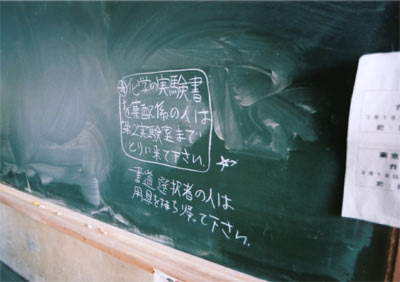 ☆化学の実験書
を薬配係の人は
第2実験室まで
とりに来て下さい。☆
書道選択者の人は
用具を持ち帰って下さい。